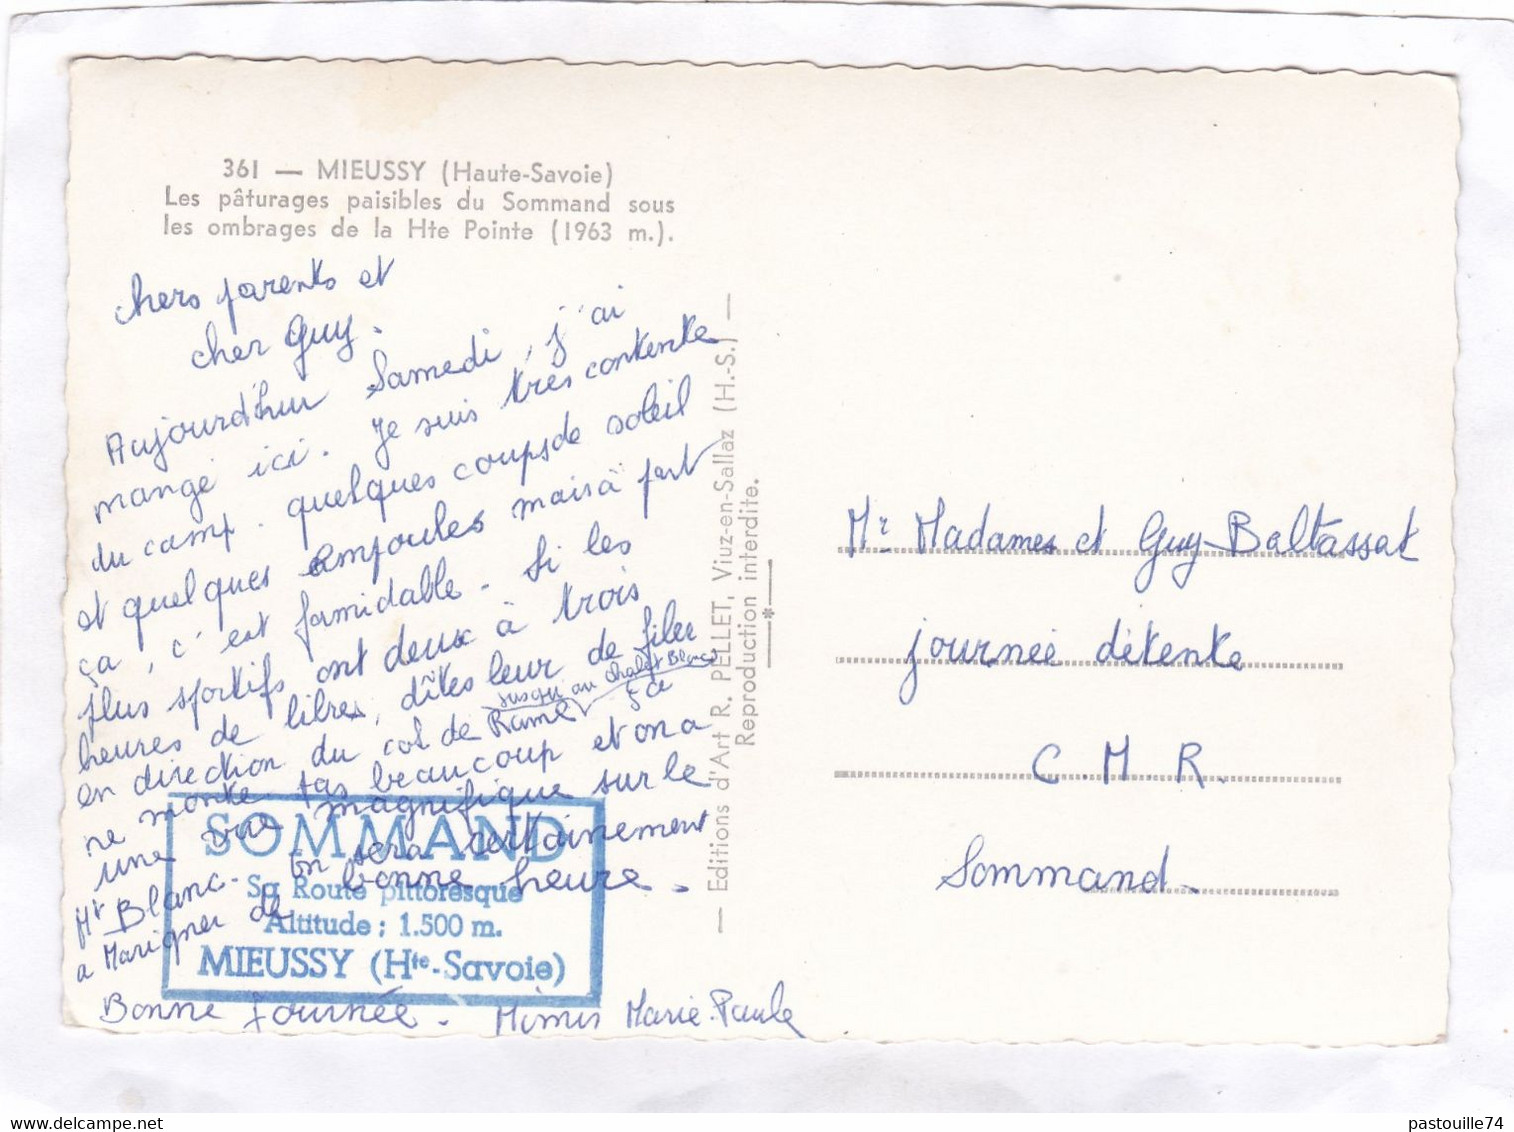 361 — MIEUSSY (Haute-Savoie)
Les pâturages paisibles du Sommand sous
les ombrages de la Hte Pointe (1963 m.).
chers parents et
cher Guy.
Aujourd'hui Samedi, j'ai
mangé ici. Je suis très contente
du camp. quelques coups de soleil
et quelques ampoules mais à part
ça, c'est formidable. Si les
plus sportifs ont deux à trois
heures de libres, dîtes leur de filer
jusqu'au chalet Blanc
en direction du col de Rame ça
ne monte pas beaucoup et on a
une vue magnifique sur le
Mt Blanc. On sera certainement
a Marigner de bonne heure.
Bonne Journée. Mimis Marie.Paule
SOMMAND
Sa Route pittoresque
Altitude : 1.500 m.
MIEUSSY (Hte-Savoie)
— Editions d'Art R. PELLET, Viuz-en-Sallaz (H.-S.) —
Reproduction interdite.
Mr Madames et Guy Baltassat
journée détente
C.M.R.
Sommand.
delcampe.net
pastouille74